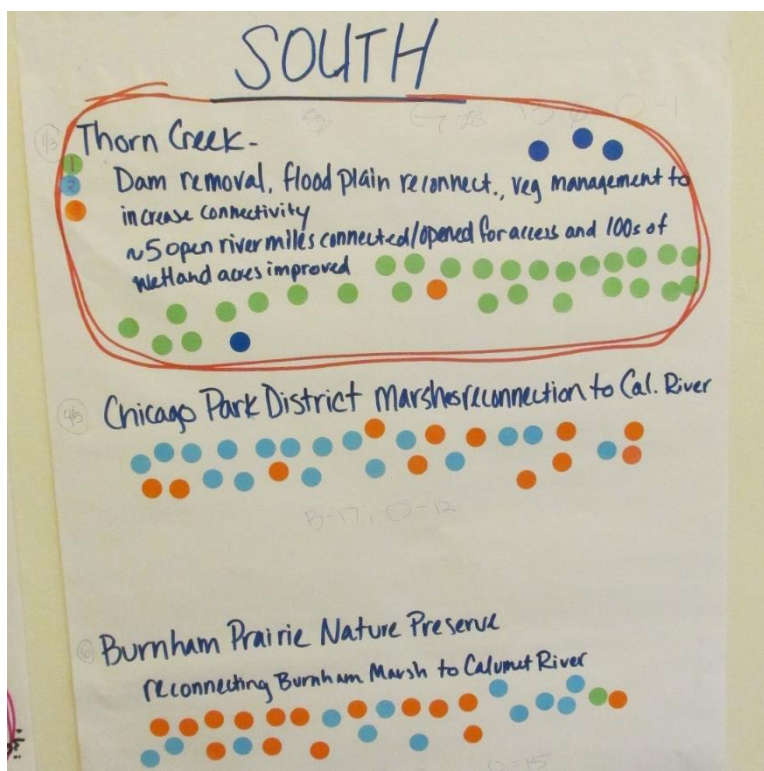 SOUTH
Thorn Creek-
1
2
Dam removal, flood plain reconnect., veg management to
increase connectivity
~5 open river miles connected/opened for access and 100s of
wetland acres improved
Chicago Park District Marshes reconnection to Cal. River
B-17, O-12
6
Burnham Prairie Nature Preserve
reconnecting Burnham Marsh to Calumet River
=15